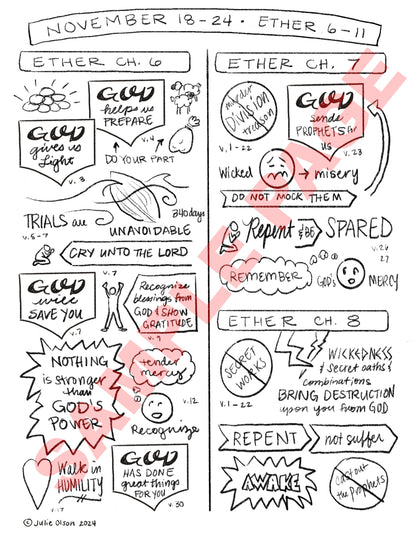 NOVEMBER 18-24 · ETHER 6-11
ETHER CH. 6
GOD
helps us
PREPARE
v. 4
GOD
gives us
light
v. 3
DO YOUR PART
TRIALS are
UNAVOIDABLE
340 days
v. 5-7
CRY UNTO THE LORD
v. 7
GOD
will
SAVE YOU
v. 7
Recognize
blessings from
GOD & SHOW
GRATITUDE
v. 9
NOTHING
is stronger
than
GOD'S
POWER
tender
mercy
v. 12
Recognize
Walk in
HUMILITY
v. 17
GOD
HAS DONE
great things
FOR YOU
v. 30
© Julie Olson 2024
ETHER CH. 7
murder
Division
treason
v. 1-22
GOD
sends
PROPHETS for
us
v. 23
Wicked → misery
DO NOT MOCK THEM
Repent & BE SPARED
v. 26
27
REMEMBER
GOD'S
MERCY
ETHER CH. 8
SECRET
WORKS
v. 1-22
WICKEDNESS
& secret oaths &
combinations
BRING DESTRUCTION
upon you from GOD
REPENT
not suffer
AWAKE
cast out
the prophets
SAMPLE PAGE